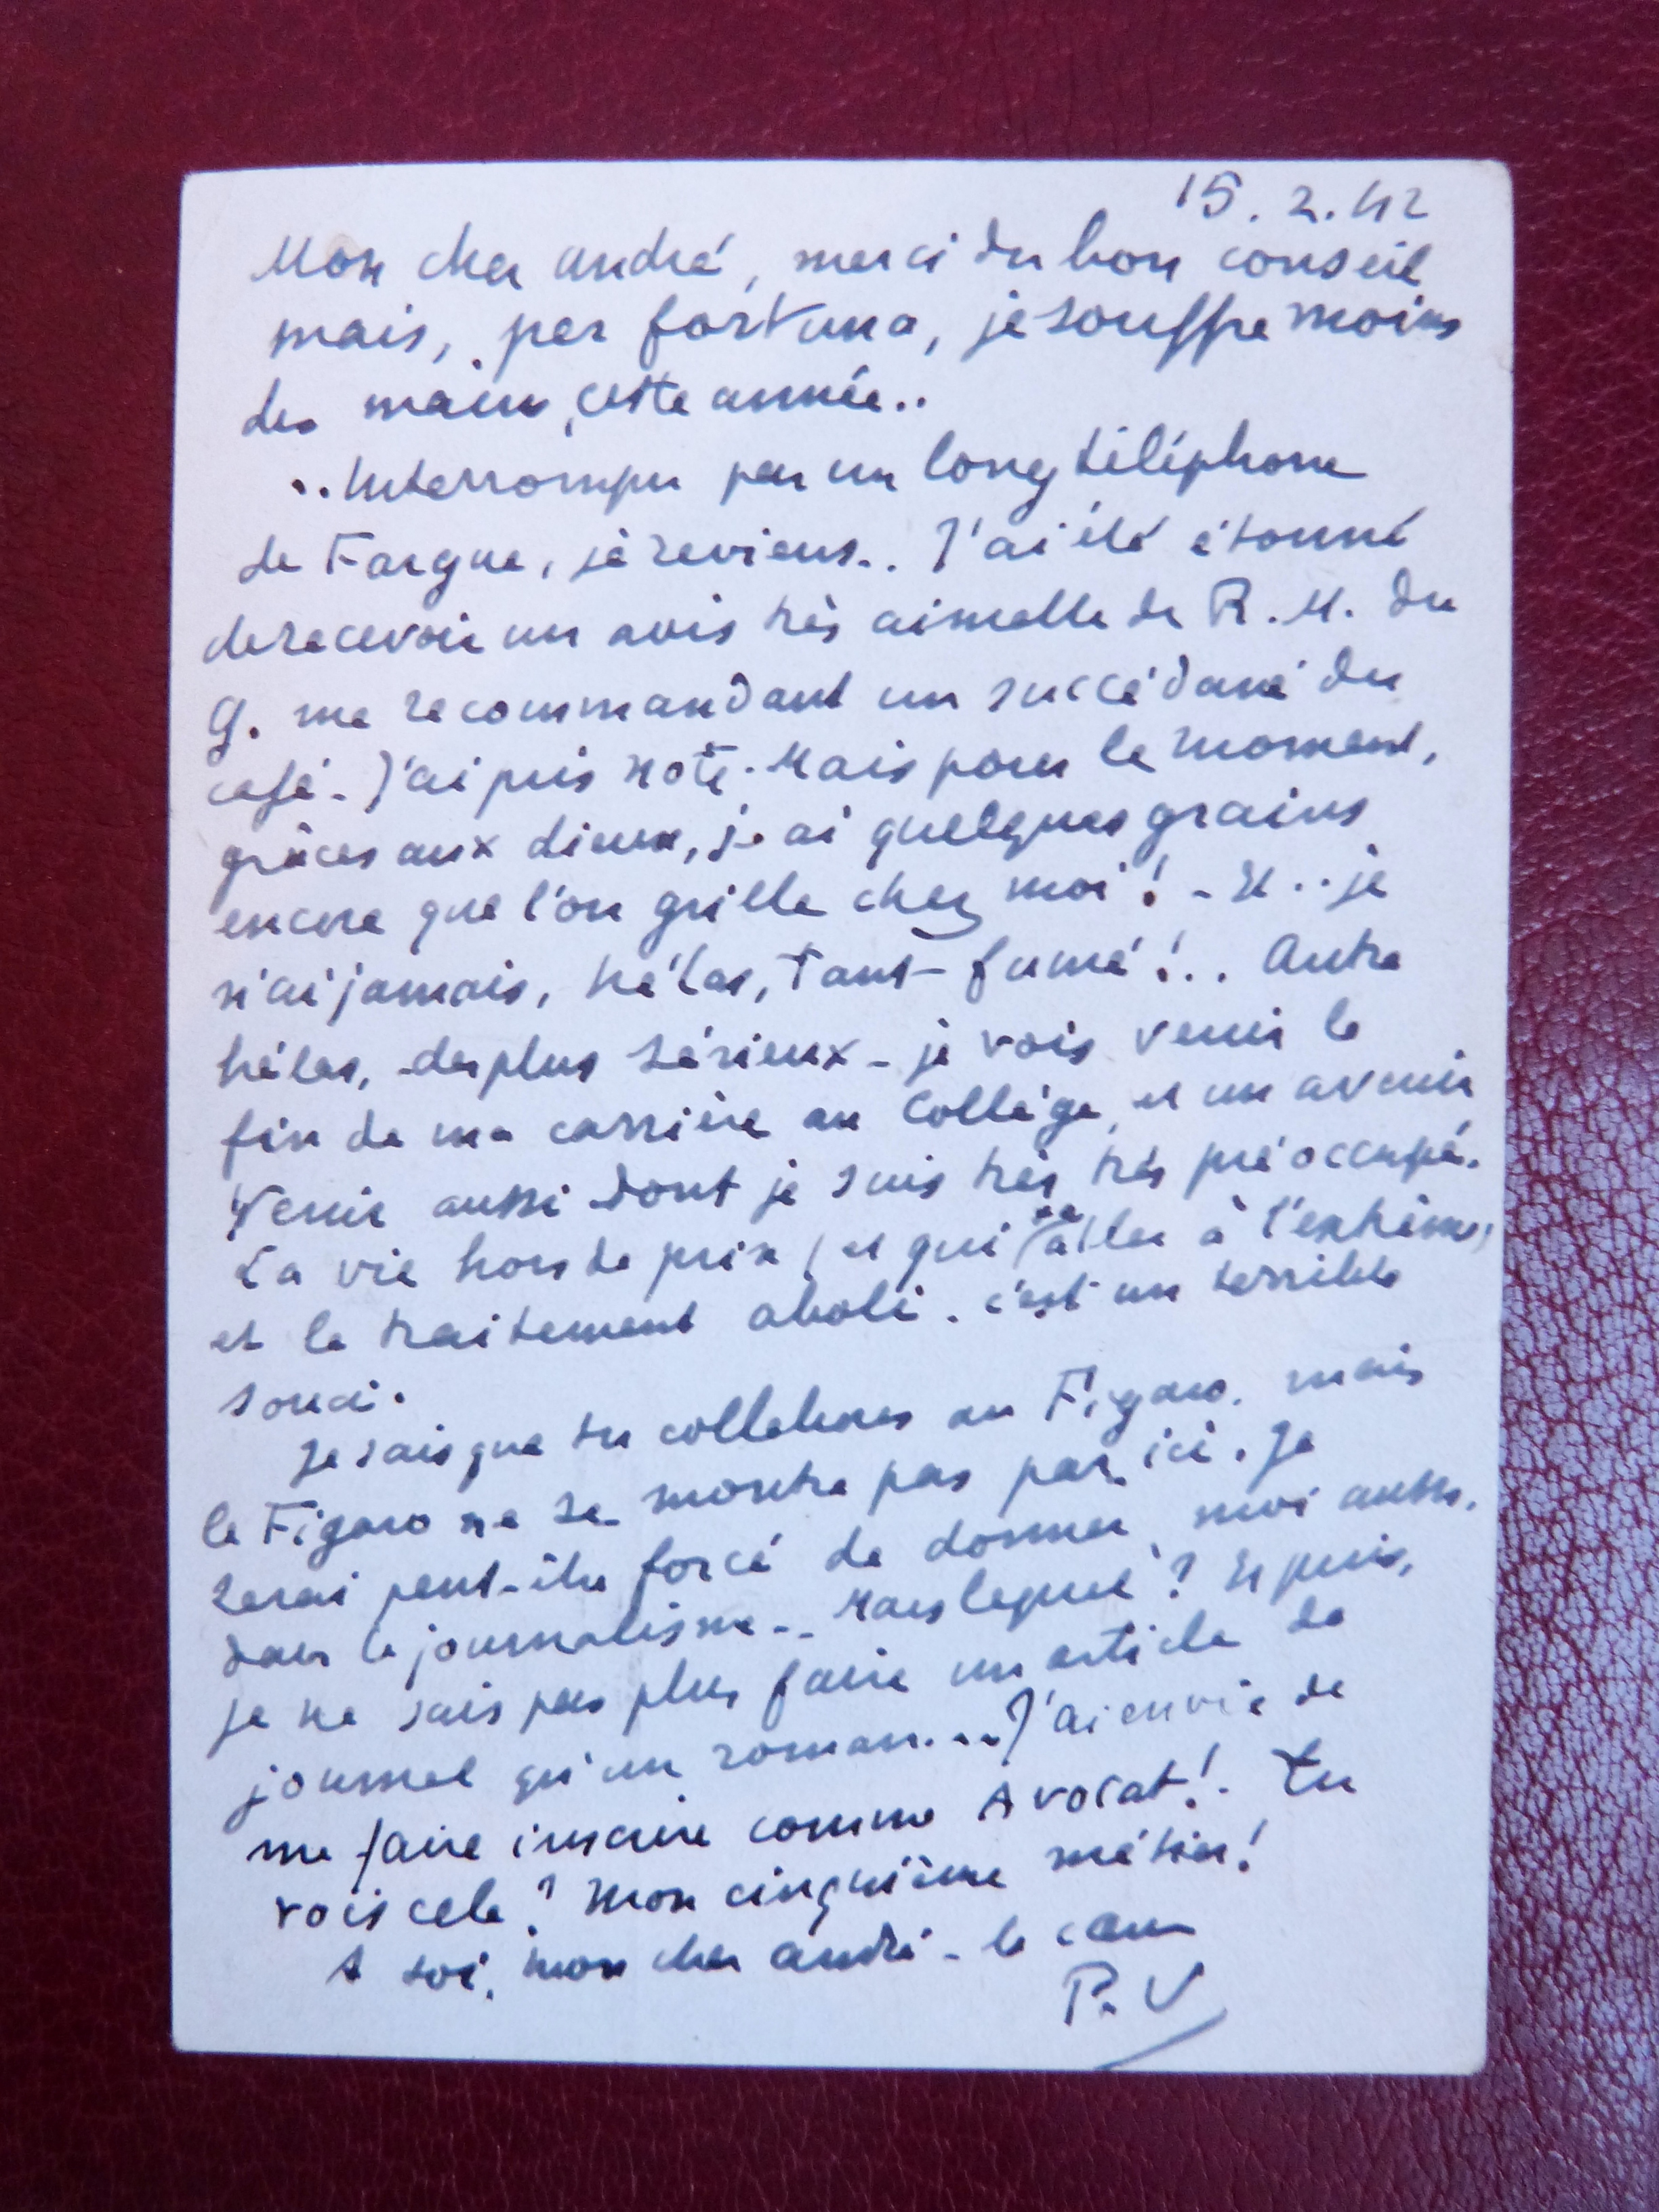 15.2.42
Mon cher André, merci du bon conseil
mais, per fortuna, je souffre moins
des mains, cette année..
..Interrompu par un long téléphone
de Fargue, je reviens.. J'ai été étonné
de recevoir un avis très aimable de R. M. du
G. me recommandant un succédané du
café. J'ai pris note. Mais pour le moment,
grâces aux dieux, j'ai quelques grains
encore que l'on grille chez moi! - Et.. je
n'ai jamais, hélas, tant fumé!.. Autre
hélas, - des plus sérieux - je vois venir la
fin de ma carrière au Collège, et un avenir
venir aussi dont je suis très très préoccupé.
La vie hors de prix (et qui va aller à l'extrême)
et le traitement aboli. C'est un terrible
souci.
Je sais que tu collabores au Figaro. mais
le Figaro ne se montre pas par ici. Je
serai peut-être forcé de donner, moi aussi,
dans le journalisme.. Mais lequel? Et puis,
je ne sais pas plus faire un article de
journal qu'un roman... J'ai envie de
me faire inscrire comme Avocat!. Tu
vois cela? Mon cinquième métier!
A toi, mon cher André - le cœur
P. V